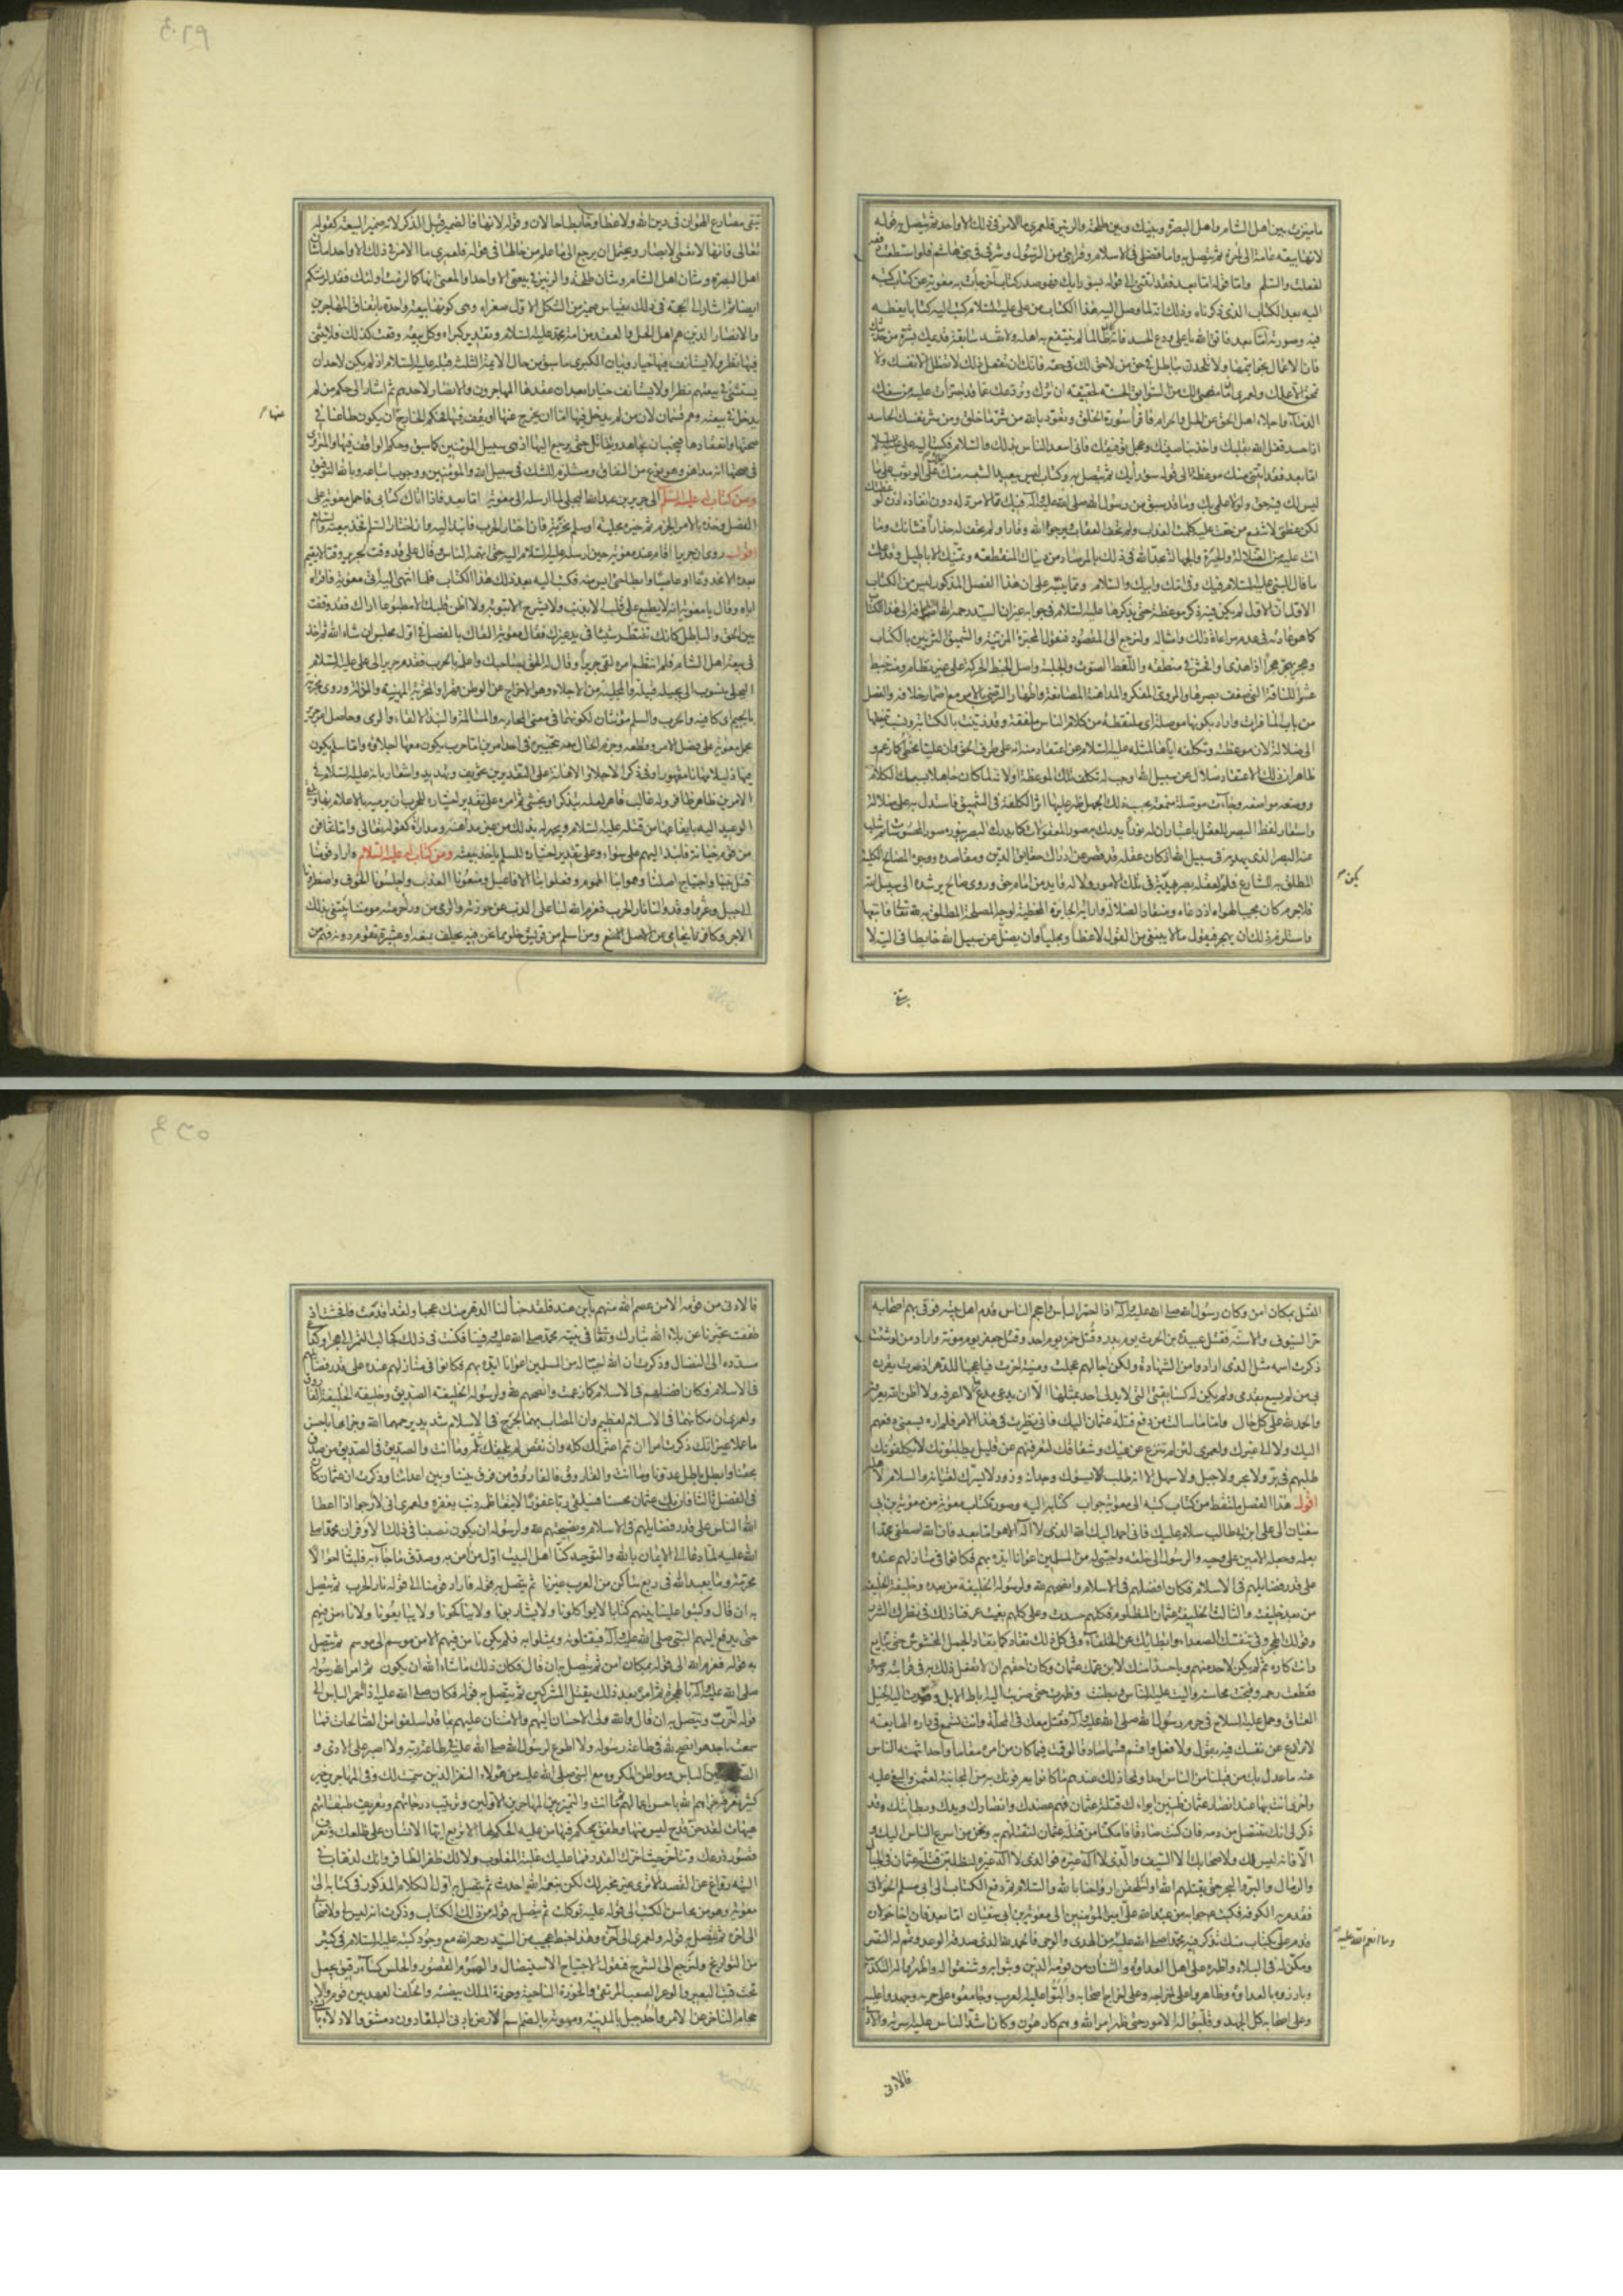 ما بينك وبين اهل الشام واهل البصرة وبينك وبين طلحة والزبير فلعمرى ما الامر فى ذلك الا واحد ثم يتصل به قوله
لانها بيعة عامة الى آخره ثم يتصل به واما فضلى فى الاسلام وقرابتى من الرسول وشرفى فى بنى هاشم فلو استطعت دفعه
لفعلت والسلم واما قوله اما بعد فقد اتتنى الى قوله بسوء رايك فهو صدر كتاب آخر اجاب به معوية عن كتاب كتبه
اليه بعد الكتاب الذى ذكرناه وذلك انه لما وصل اليه هذا الكتاب من على عليه السلام كتب اليه كتابا يعظه
فيه وصورته اما بعد فاتق الله يا على ودع الحسد فانه طالما لم ينتفع به اهله ولا تفسد سابقة قدمك بشره من حديثك
فان الاعمال بخواتيمها ولا تلحدن بباطل فى حق من لا حق لك فى حقه فانك ان تفعل ذلك لا تضلل الا نفسك ولا
تمحق الا عملك ولعمرى ان ما مضى لك من السوابق الحسنة لحقيقة ان تردك وتردعك عما قد اجترأت عليه من سفك
الدماء واجلاء اهل الحق عن الحل والحرام فاقرأ سورة الفلق وتعوذ بالله من شر ما خلق ومن شر نفسك الحاسد
اذا حسد قفل الله بقلبك واخذ بناصيتك وعجل توفيقك فانى اسعد الناس بذلك والسلام فكتب اليه على عليه السلام
اما بعد فقد اتتنى منك موعظة الى قوله سوء رأيك ثم يتصل به وكتاب ليس ببعيد الشبه منك حملك على الوثوب على ما
ليس لك فيه حق ولولا علمى بك وما قد سبق من رسول الله صلى الله عليه وآله فيك مما لا مرد له دون انفاذه اذن لوعظتك
لكن عظتى لا تنفع من حقت عليه كلمة العذاب ولم يخف العقاب ولم يرج لله وقارا ولم يخف له حذارا فشأنك وما
انت عليه من الضلالة والحيرة والجهالة تجد الله فى ذلك بالمرصاد من دنياك المنقطعة وتمنيك الاباطيل وقد علمت
ما قال النبى عليه السلام فيك وفى امك وابيك والسلام ومما ينبه على ان هذا الفصل المذكور ليس من الكتاب
الاول ان الاول لم يكن فيه ذكر موعظة حتى يذكرها عليه السلام فى جوابه غير ان السيد رحمه الله اضافه الى هذا الكتاب
كما هو عادته فى عدم مراعاة ذلك وامثاله ولنرجع الى المقصود فنقول المحبرة المزينة والتنميق التزيين بالكتاب
وهجر يهجر هجرا اذا هذى وافحش فى منطقه واللغط الصوت والجلبة واصل الخبط الحركة على غير نظام ومنه خبط
عشواء للناقة التى ضعف بصرها والمروى المفكر والمداهنة المصانعة واظهار الرضى بالامر مع اضمار خلافه والفصل
من باب المنافرات واراد بكونها موصلة اى ملتقطة من كلام الناس ملفقة وقد زينت بالكتابة ونسب تنميقها
الى ضلاله لان موعظته وتكلفه اياها لمثله عليه السلام عن اعتقاد منه انه على طرف الحق وان عليا مخطئ كما زعم و
ظاهر ان ذلك الاعتقاد ضلال عن سبيل الله اوجب له تكلف تلك الموعظة اولا ثم لما كان جاهلا بسبك الكلام
ووضعه مواضعه وجاءت موصلة منمقة بحسب ذلك الجهل ظهر عليها اثر الكلفة فى التنميق فاستدل به على ضلاله
واستعار لفظ البصر للعقل باعتبار ان له نورا يدرك به صور المعقولات كما يدرك البصر بنوره صور المحسوسات ثم سلب
عنه البصر الذى يهديه فى سبيل الله اذ كان عقله قد قصر عن ادراك حقايق الدين ومقاصده ووجوه المصالح الكلية
المطلوبة للشارع فلم يكن لعقله بصر يهديه فى تلك الامور ولا له قايد من امام حق وروى صالح يرشده الى سبيل الله
فلا جرم كان مجيبا لهواه اذ دعاه ومنقادا لضلاله وارائه الجايرة المخطئة لوجه المصلحة المطلوبة لله تعالى فاتبعها
واستلزم ذلك ان يهجر فيقول ما لا ينبغى من القول لاغطا وجلبا وان يضل عن سبيل الله خابطا فى التيه لا
يكن
يتقى
يتقى مصارع الهوان فى دين الله ولاغطا وخابطا حالان وقوله لانها فالضمير قبل الذكر لانه ضمير البيعة كقوله
تعالى فانها لا تعمى الابصار ويحتمل ان يرجع الى ما علم من حالها فى قوله فلعمرى ما الامر فى ذلك الا واحدا ما شان
اهل البصرة وشان اهل الشام وشان طلحة والزبير فى بيعتى الا واحدا والمعنى انها كما لزمت اولئك فقد لزمتكم
ايضا ثم اشار الى الحجة فى ذلك بقياس ضمير من الشكل الاول صغراه وهى كونها بيعة واحدة باتفاق المهاجرين
والانصار الذين هم اهل الحل والعقد من امة محمد عليه السلام وتقدير كبراه وكل بيعة وقعت كذلك فلا يثنى
فيها نظر ولا يستانف فيها خيار وبيان الكبرى ما سبق من حال لايمة الثلثة قبله عليه السلام اذ لم يكن لاحد ان
يستثنى فى بيعتهم نظرا ولا يستانف خيارا بعد ان عقدها المهاجرون والانصار لاحدهم ثم اشار الى حكم من لم
يدخل فى بيعته وهم قسمان لان من لم يدخل فيها اما ان يخرج عنها او يقف فيها فحكم الخارج ان يكون طاعنا فى
صحتها وانعقادها فيجب ان يجاهد ويقاتل حتى يرجع اليها اذ هى سبيل المومنين كما سبق وحكم الواقف فيها والمروى
فى صحتها انه مداهن وهو نوع من النفاق ومستلزم للشك فى سبيل الله والمومنين ووجوب اتباعه وبالله التوفيق
ومن كتاب له عليه السلم الى جرير بن عبد الله البجلى لما ارسله الى معوية اما بعد فاذا اتاك كتابى فاحمل معوية على
الفصل وخذه بالامر الجزم ثم خيره بين حرب مجلية او سلم مخزية فان اختار الحرب فانبذ اليه وان اختار السلم فخذ بيعته والسلام
اقول روى ان جريرا اقام عند معوية حين ارسله عليه السلام اليه حتى اتهمه الناس وقال على قد وقت لجرير وقتا لا يقيم
بعده الا مخدوعا او عاصيا وابطأ حتى ايس منه فكتب اليه بعد ذلك هذا الكتاب فلما انتهى اليه اتى معوية فاقراه
اياه وقال يا معوية انه لا يطبع على قلب الا بذنب ولا يشرح الا بتوبة ولا اظن قلبك الا مطبوعا اراك قد وقفت
بين الحق والباطل كانك تنتظر شيئا فى يد غيرك فقال معوية القاك بالفصل فى اول مجلس ان شاء الله ثم اخذ
فى بيعة اهل الشام فلما انتظم امره لقى جريرا وقال له الحق بصاحبك واعلمه بالحرب فقدم جرير الى على عليه السلام
البجلى منسوب الى بجيلة قبيلة والمجلية من الاجلاء وهو الاخراج عن الوطن قهرا والمخزية المهينة والمذلة وروى مجزية
بالجيم اى كافية والحرب والسلم مؤنثان لكونهما فى معنى المحاربة والمسالمة والنبذ الالقاء والرمى وحاصل امره ان
يحمل معوية على فصل الامر وقطعه وجزم الحال معه بتخييره فى احد امرين اما حرب يكون معها اجلاؤه واما سلم يكون
فيها ذليلا مهانا مقهورا وفى ذكر الاجلاء والاهانة على التقديرين تخويف وتهديد واشعار بانه عليه السلام فى
الامرين ظاهر ظافر وله غالب قاهر لعله يتذكر او يخشى ثم امره على تقدير اختياره للحرب ان يرميه بالاعلام بها ويلقى
الوعيد اليه بايقاعها من قبله عليه السلام ويجهر له بذلك من غير مداهنة ومداراة كقوله تعالى واما تخافن
من قوم خيانة فانبذ اليهم على سواء وعلى تقدير اختياره للسلم ياخذ بيعته ومن كتاب له عليه السلام واراد قومنا
قتل نبينا واجتياح اصلنا وهموا بنا الهموم وفعلوا بنا الافاعيل ومنعونا العذب واحلسونا الخوف واضطرونا
الى جبل وعر واوقدوا لنا نار الحرب فعزم الله لنا على الذب عن حوزته والرمى من وراء حرمته مومننا يبتغى بذلك
الاجر وكافرنا يحامى عن الاصل ومن اسلم من قريش خلو مما نحن فيه بحلف يمنعه او عشيرة تقوم دونه فهم من
عنها
القتل بمكان امن وكان رسول الله صلى الله عليه وآله اذا احمر الباس واحجم الناس قدم اهل بيته فوقى بهم اصحابه
حر السيوف والاسنة فقتل عبيدة بن الحرث يوم بدر وقتل حمزة يوم احد وقتل جعفر يوم موتة واراد من لو شئت
ذكرت اسمه مثل الذى ارادوا من الشهادة ولكن اجالهم عجلت ومنيته اخرت فيا عجبا للدهر اذ صرت يقرن
بى من لم يسع بقدمى ولم يكن له كسابقتى التى لا يدلى احد بمثلها الا ان يدعى مدع ما لا اعرفه ولا اظن الله يعرفه
والحمد لله على كل حال واما ما سالت من دفع قتلة عثمان اليك فانى نظرت فى هذا الامر فلم اره يسعنى دفعهم
اليك ولا الى غيرك ولعمرى لئن لم تنزع عن غيك وشقاقك لتعرفنهم عن قليل يطلبونك لا يكلفونك
طلبهم فى بر ولا بحر ولا جبل ولا سهل الا انه طلب يسوءك وجدانه وزور لا يسرك لقيانه والسلام لاهله
اقول هذا الفصل ملتقط من كتاب كتبه الى معوية جواب كتابه اليه وصورة كتاب معوية من معوية بن ابى
سفيان الى على ابن ابى طالب سلام عليك فانى احمد اليك الله الذى لا اله الا هو اما بعد فان الله اصطفى محمدا
بعلمه وجعله الامين على وحيه والرسول الى خلقه واجتبى له من المسلمين اعوانا ايده بهم فكانوا فى منازلهم عنده
على قدر فضايلهم فى الاسلام فكان افضلهم فى الاسلام وانصحهم لله ولرسوله الخليفة من بعده وخليفة الخليفة
من بعد خليفته والثالث الخليفة عثمان المظلوم فكلهم حسدت وعلى كلهم بغيت عرفنا ذلك فى نظرك الشزر
وقولك الهجر وفى تنفسك الصعداء وابطائك عن الخلفاء وفى كل ذلك تقاد كما يقاد الجمل المخشوش حتى تبايع
وانت كاره ثم لم يكن لاحد منهم باحسد منك لابن عمك عثمان وكان احقهم ان لا تفعل ذلك به فى قرابته وصهره
فقطعت رحمه وقبحت محاسنه والبت عليه الناس وبطنت وظهرت حتى ضربت اليه اباط الابل وقيدت اليه الخيل
العتاق وحمل عليه السلاح فى حرم رسول الله صلى الله عليه وآله فقتل معك فى المحلة وانت تسمع فى داره الهايعة
لا تردع عن نفسك فيه بقول ولا فعل واقسم قسما صادقا لو قمت فيما كان من امره مقاما واحدا تنهنه الناس
عنه ما عدل بك من قبلنا من الناس احدا ولمحا ذلك عندهم ما كانوا يعرفونك به من المجانبة لعثمن والبغى عليه
واخرى انت بها عند انصار عثمان ظنين ايواءك قتلة عثمان فهم عضدك وانصارك ويدك وبطانتك وقد
ذكر لى انك تنتصل من دمه فان كنت صادقا فامكنا من قتلة عثمان نقتلهم به ونحن من اسرع الناس اليك و
الا فانه ليس لك ولا صحابك الا السيف والذى لا اله غيره فوالذى لا اله غيره لنطلبن قتلة عثمان فى الجبال
والرمال والبر والبحر حتى يقتلهم الله او لتلحقن ارواحنا بالله والسلام ثم دفع الكتاب الى ابى مسلم الخولانى
فقدم به الكوفة فكتب جوابه من عبد الله على امير المؤمنين الى معوية بن ابى سفيان اما بعد فان اخا خولان
قدم على بكتاب منك تذكر فيه محمدا صلى الله عليه من الهدى والوحى فالحمد لله الذى صدقه الوعد وتمم له النصر
ومكن له فى البلاد واظهره على اهل العداوة والشنآن من قومه الذين وثبوا به وشنفوا له واظهروا له التكذيب
وبارزوه بالعداوة وظاهروا على اخراجه وعلى اخراج اصحابه والبوا عليه العرب وجامعوه على حربه وجهدوا عليه
وعلى اصحابه كل الجهد وقلبوا له الامور حتى ظهر امر الله وهم كارهون وكان اشد الناس عليه اسرته والادنى
وما انعم الله عليه
فالادنى
فالادنى من قومه الا من عصم الله منهم يا ابن هند فلقد خبأ لنا الدهر منك عجبا ولقد اقدمت فافحشت اذ
طفقت تخبرنا عن بلاء الله تبارك وتعالى فى نبيه محمد صلى الله عليه وفينا فكنت فى ذلك كجالب التمر الى هجر او كداعى
مسدده الى النضال وذكرت ان الله اجتبى له من المسلمين اعوانا ايده بهم فكانوا فى منازلهم عنده على قدر فضايلهم
فى الاسلام فكان افضلهم فى الاسلام كما زعمت وانصحهم لله ولرسوله الخليفة الصديق وخليفة الخليفة الفاروق
ولعمرى ان مكانهما فى الاسلام لعظيم وان المصاب بهما لجرح فى الاسلام شديد يرحمهما الله وجزاهما باحسن
ما عملا غير انك ذكرت امرا ان تم اعتزلك كله وان نقص لم يلحقك ثلمه وما انت والصديق فالصديق من صدق
بحقنا وابطل باطل عدونا وما انت والفاروق فالفاروق من فرق بيننا وبين اعدائنا وذكرت ان عثمان كان
فى الفضل ثالثا فان يك عثمان محسنا فسيلقى ربا غفورا لا يتعاظمه ذنب يغفره ولعمرى انى لارجوا اذا اعطا
الله الناس على قدر فضايلهم فى الاسلام ونصيحتهم لله ولرسوله ان يكون نصيبنا فى ذلك الاوفر ان محمدا صلى
الله عليه لما دعا الى الايمان بالله والتوحيد كنا اهل البيت اول من آمن به وصدق ما جاء به فلبثنا احوالا
مجرمة وما يعبد الله فى ربع ساكن من العرب غيرنا ثم يتصل به قوله فاراد قومنا الى قوله نار الحرب ثم يتصل
به ان قال وكتبوا علينا بينهم كتابا لا يواكلونا ولا يشاربونا ولا يناكحونا ولا يبايعونا ولا نامن فيهم
حتى يدفع اليهم النبى صلى الله عليه وآله فيقتلونه ويمثلوا به فلم نكن نامن فيهم الا من موسم الى موسم ثم يتصل
به قوله فعزم الله الى قوله بمكان امن ثم يتصل به ان قال فكان ذلك ما شاء الله ان يكون ثم امر الله رسوله
صلى الله عليه وآله بالهجرة ثم امره بعد ذلك بقتل المشركين ثم يتصل به قوله فكان صلى الله عليه اذا احمر الباس الى
قوله اخرت ويتصل به ان قال والله ولى الاحسان اليهم والامتنان عليهم بما قد اسلفوا من الصالحات فما
سمعت باحد هو انصح لله فى طاعة رسوله ولا اطوع لرسول الله صلى الله عليه فى طاعة ربه ولا اصبر على الاذى و
الباس ومواطن المكروه مع النبى صلى الله عليه من هؤلاء النفر الذين سميت لك وفى المهاجرين خير
كثير نعرفه جزاهم الله باحسن اعمالهم فما انت والتمييز بين المهاجرين الاولين وترتيب درجاتهم وتعريف طبقاتهم
هيهات لقد حن قدح ليس منها وطفق يحكم فيها من عليه الحكم لها الا تربع ايها الانسان على ظلعك وتعرف
قصور ذرعك وتتأخر حيث اخرك القدر فما عليك غلبة المغلوب ولا لك ظفر الظافر وانك لذهاب فى
التيه رواغ عن القصد الا ترى غير مخبر لك لكن بنعمة الله احدث ثم يتصل به اول الكلام المذكور فى كتابه الى
معوية وهو من محاسن الكتب الى قوله عليه توكلت ثم يتصل به قوله من تلك الكتاب وذكرت انه ليس لى ولاصحابى
الى آخره ثم يتصل به قوله ولعمرى الى آخره وهذا خبط عجيب من السيد رحمه الله مع وجود كتبه عليه السلام فى كثير
من التواريخ ولنرجع الى الشرح فنقول الاجتياح الاستيصال والهموم القصود والحلس كساء رقيق يجعل
تحت قتب البعير والوعر الصعب المرتقى والحوزة الناحية وحوزة الملك بيضته والحلف العهد بين قوم والا
حجام التاخر عن الامر واحد جبل بالمدينة وموتة بالضم اسم لارض بادنى البلقاء دون دمشق والادلاء